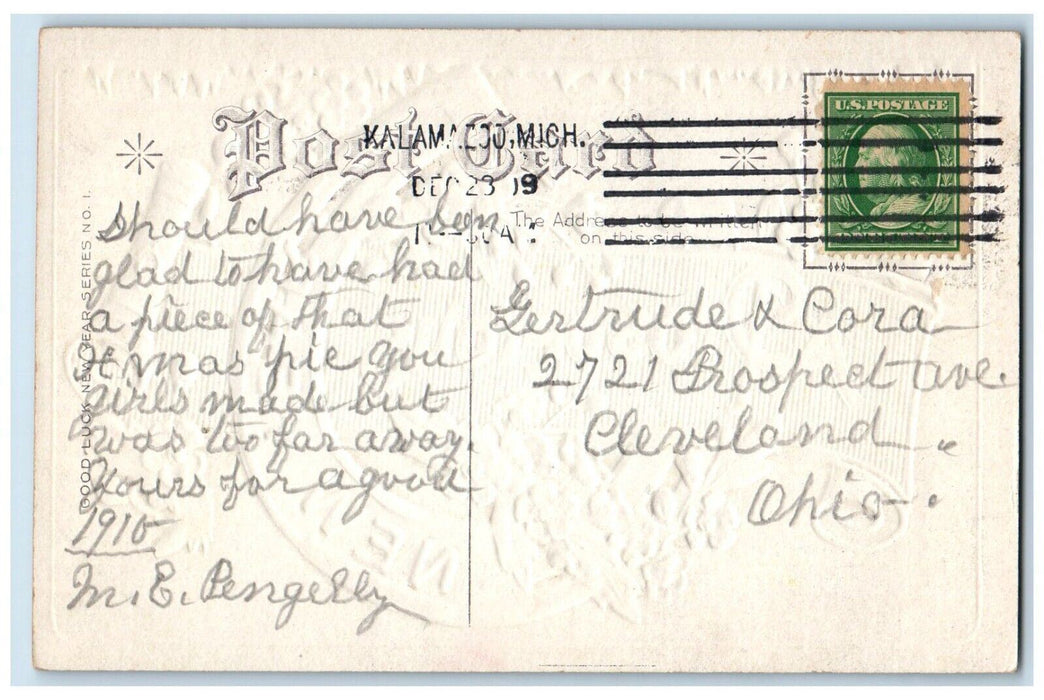 Post Card
U.S. POSTAGE
KALAMAZOO, MICH.
DEC 28 09
The Address to be written
on this side.
GOOD LUCK NEW YEAR SERIES NO. 1.
Should have ben
glad to have had
a piece of that
Xmas pie you
girls made but
was too far away.
Yours for a good
1910
M. E. Pengelly
Gertrude & Cora
2721 Prospect ave.
Cleveland
Ohio.